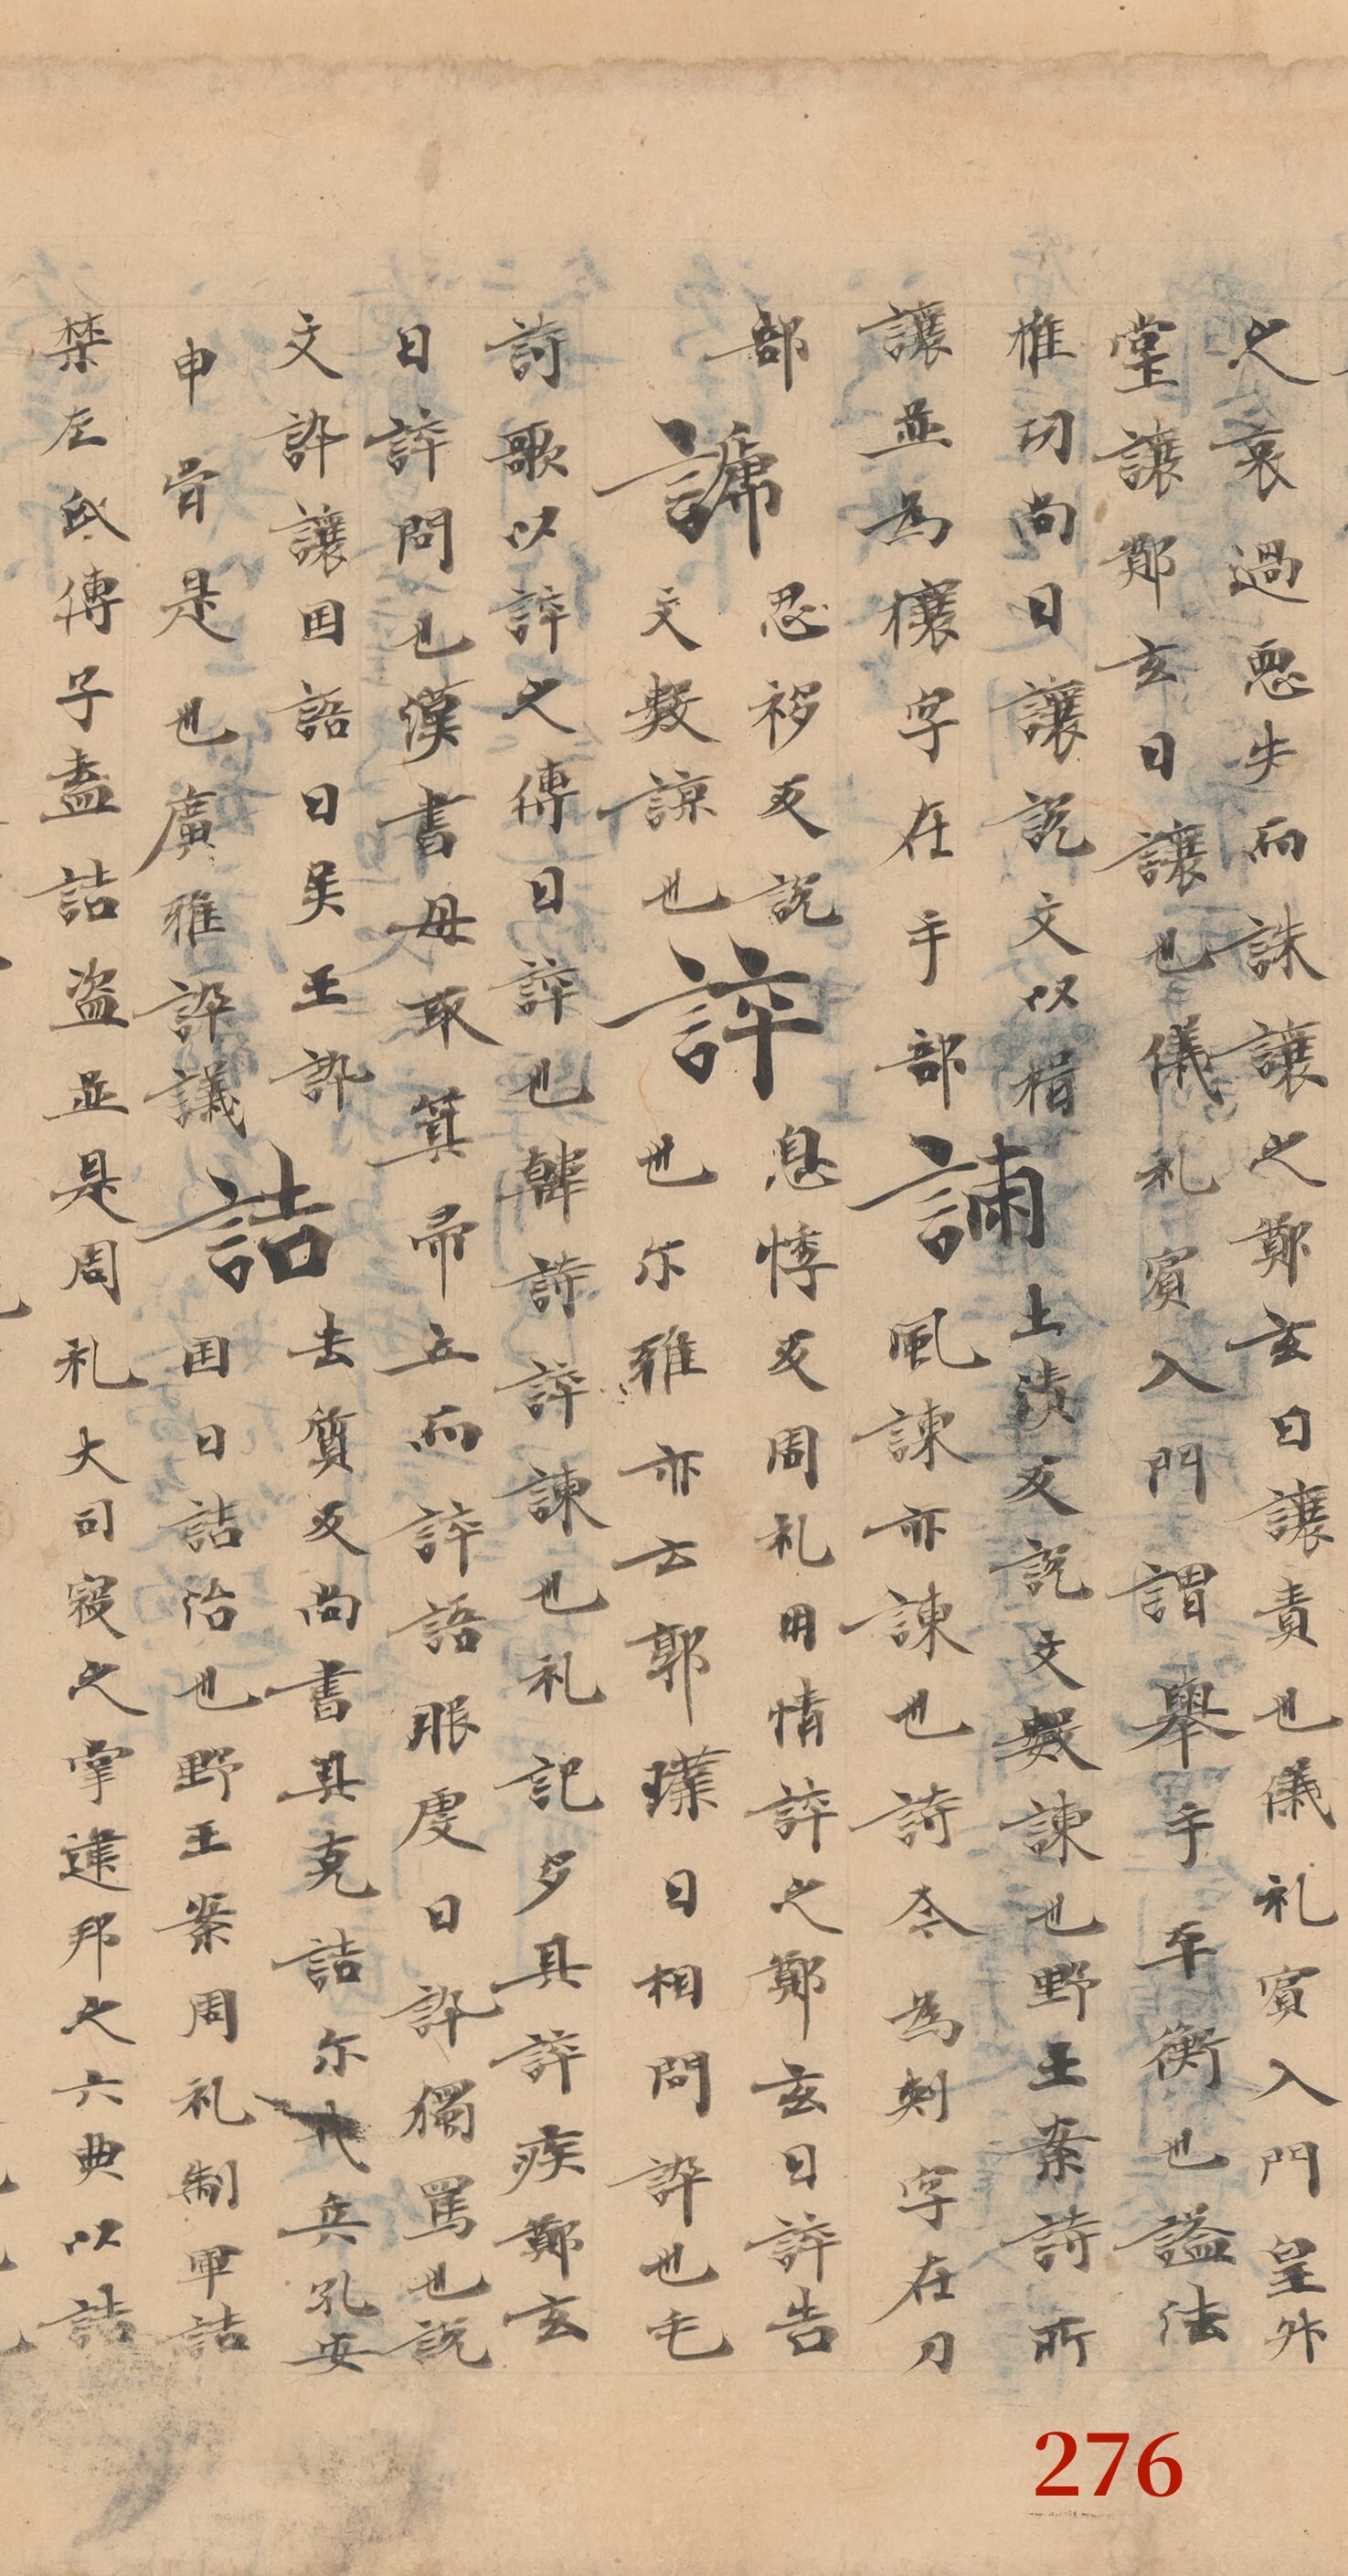 之哀過惡失而誅讓之鄭玄曰讓責也儀礼賓入門皇升
堂讓鄭玄曰讓也儀礼賓入門謂舉手平衡也謚法
推切尚曰讓説文以楫
讓並為攘字在手部
諫
土漬反説文數諫也野王案詩所
風諫亦諫也詩今為刺字在刀
部
謕
忍移反説
文數諒也
誶
息悸反周礼用情誶之鄭玄曰誶告
也尓雅亦云郭璞曰相問訊也毛
詩歌以誶之傳曰誶也韓詩誶諫也礼記多其誶疾鄭玄
曰誶問也漢書母取箕帚立而誶語服虔曰訊獨罵也説
文訊讓国語曰吳王訊
申胥是也廣雅誶議
詰
去質反尚書其克詰尓戎兵孔安
国曰詰治也野王案周礼制軍詰
禁左氏傳子盍詰盗並是周礼大司寇之掌建邦之六典以詰
276